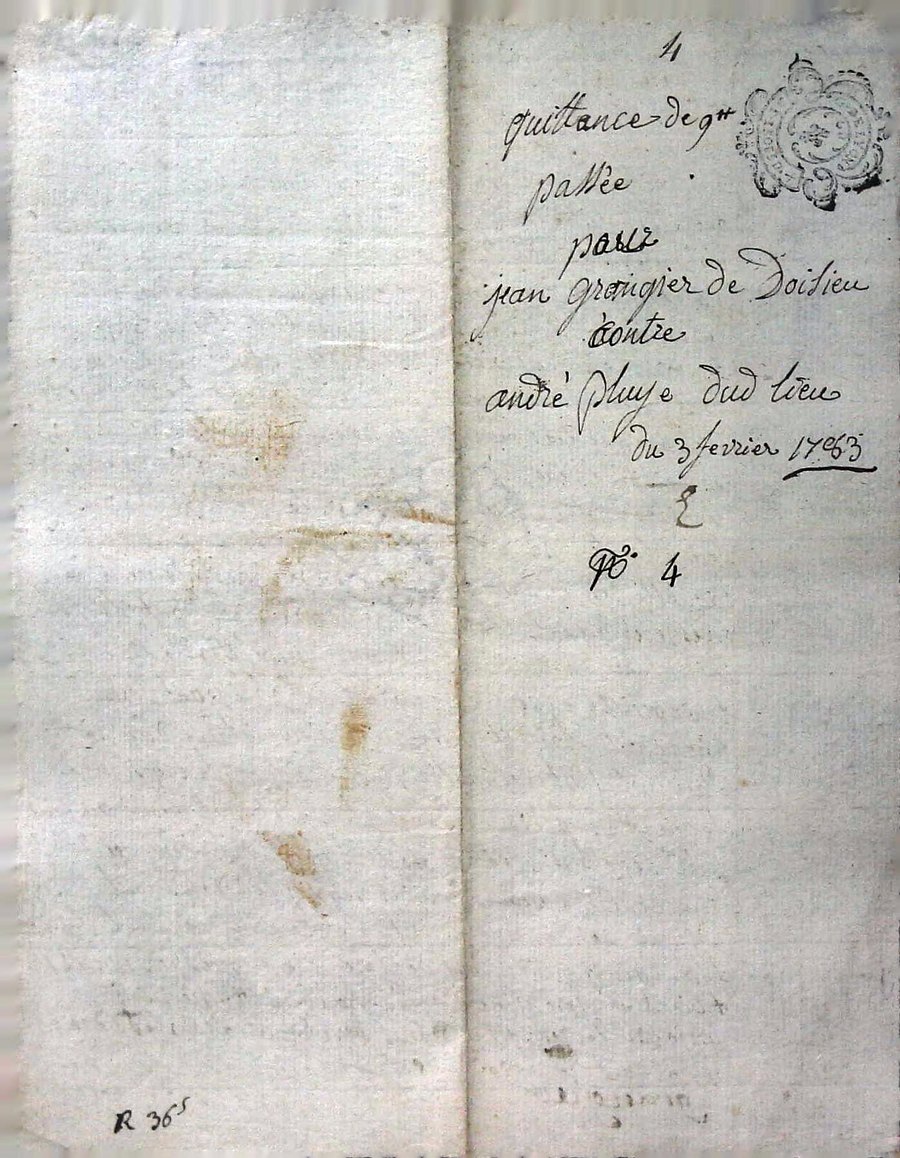 4
quittance de 9 ₶
passée
pour
jean grangier de Doisieu
contre
andré pluye dud lieu
du 3 fevrier 1763
N° 4
R 36ˢ